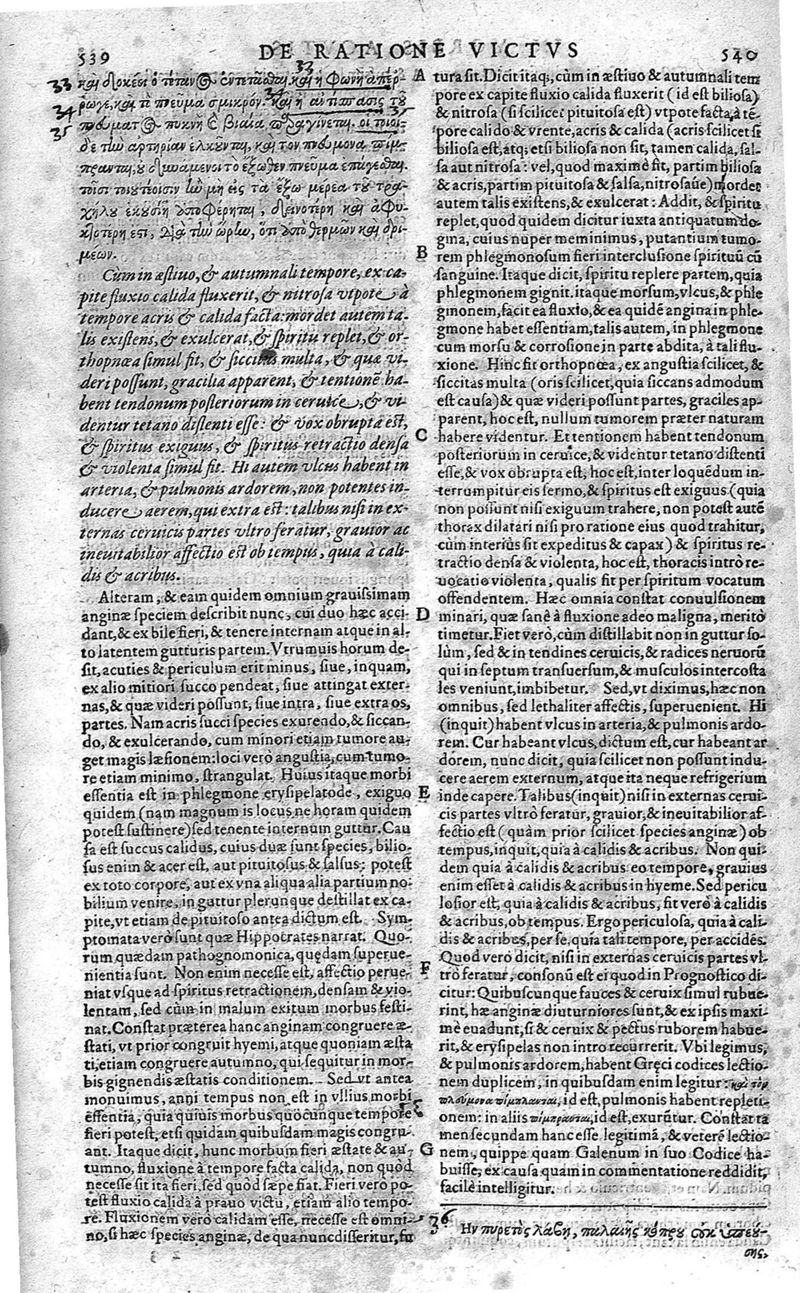 539 DE RATIONE VICTVS 540
33
33 καὶ δοκέει ὁ τέτανος ἐντετάσθαι, καὶ ἡ φωνὴ ἀπέρ-
34 ρωγε, καὶ τὸ πνεῦμα σμικρὸν. καὶ ἡ ἀντίσπασις τοῦ
35 πνεύματος πυκνὴ καὶ βιαία παραγίνεται. οἱ τοιοί-
δε τὴν ἀρτηρίαν ἑλκοῦνται, καὶ τὸν πνεύμονα πίμ-
πρανται, οὐ δυνάμενοι τὸ ἔξωθεν πνεῦμα ἐπάγεσθαι.
τοῖσι τοιούτοισιν ἢν μὴ εἰς τὰ ἔξω μέρεα τοῦ τρα-
χήλου ἑκουσίη ἀποφέρηται, δεινοτέρη καὶ ἀφυ-
κτοτέρη ἐστί, διὰ τὴν ὥρην, ὅτι ἀπὸ θερμῶν καὶ δρι-
μέων.
Cùm in æstiuo, & autumnali tempore, ex ca-
pite fluxio calida fluxerit, & nitrosa vtpote à
tempore acris & calida facta: mordet autem ta-
lis existens, & exulcerat, & spiritu replet, & or-
thopnœa simul fit, & siccitas multa, & quæ vi-
deri possunt, gracilia apparent, & tentionē ha-
bent tendonum posteriorum in ceruice, & vi-
dentur tetano distenti esse: & vox obrupta est,
& spiritus exiguus, & spiritus retractio densa
& violenta simul fit. Hi autem vlcus habent in
arteria, & pulmonis ardorem, non potentes in-
ducere aerem, qui extra est: talibus nisi in ex-
ternas ceruicis partes vltro feratur, grauior ac
ineuitabilior affectio est ob tempus, quia à cali-
dis & acribus.
Alteram, & eam quidem omnium grauissimam
anginæ speciem describit nunc, cui duo hæc acci-
dant, & ex bile fieri, & tenere internam atque in al-
to latentem gutturis partem. Vtrumuis horum de-
sit, acuties & periculum erit minus, siue, inquam,
ex alio mitiori succo pendeat, siue attingat exter-
nas, & quæ videri possunt, siue intra, siue extra os,
partes. Nam acris succi species exurendo, & siccan-
do, & exulcerando, cum minori etiam tumore au-
get magis læsionem: loci verò angustia, cum tumo-
re etiam minimo, strangulat. Huius itaque morbi
essentia est in phlegmone erysipelatode, exiguo
quidem (nam magnum is locus ne horam quidem
potest sustinere) sed tenente internum guttur. Cau
sa est succus calidus, cuius duæ sunt species, bilio-
sus enim & acer est, aut pituitosus & salsus: potest
ex toto corpore, aut ex vna aliqua alia partium no-
bilium venire, in guttur plerunque destillat ex ca-
pite, vt etiam de pituitoso antea dictum est. Sym-
ptomata verò sunt quæ Hippocrates narrat. Quo-
rum quædam pathognomonica, quędam superue-
nientia sunt. Non enim necesse est, affectio perue-
niat vsque ad spiritus retractionem, densam & vio-
lentam, sed cùm in malum exitum morbus festi-
nat. Constat præterea hanc anginam congruere æ-
stati, vt prior congruit hyemi, atque quoniam æsta
ti, etiam congruere autumno, qui sequitur in mor-
bis gignendis æstatis conditionem. Sed vt antea
monuimus, anni tempus non est in vllius morbi
essentia, quia quiuis morbus quocunque tempore
fieri potest, etsi quidam quibusdam magis congru-
ant. Itaque dicit, hunc morbum fieri æstate & au-
tumno, fluxione à tempore facta calida, non quòd
necesse sit ita fieri, sed quòd sæpe fiat. Fieri verò po-
test fluxio calida à prauo victu, etiam alio tempo-
re. Fluxionem verò calidam esse, necesse est omni-
no, si hæc species anginæ, de qua nunc disseritur, fu
A tura sit. Dicit itaq;, cùm in æstiuo & autumnali tem
pore ex capite fluxio calida fluxerit (id est biliosa)
& nitrosa (si scilicet pituitosa est) vtpote facta, à tē-
pore calido & vrente, acris & calida (acris scilicet si
biliosa est, atq; etsi biliosa non sit, tamen calida, sal-
sa aut nitrosa: vel, quod maximè fit, partim biliosa
& acris, partim pituitosa & salsa, nitrosaúe) mordet
autem talis existens, & exulcerat: Addit, & spiritu
replet, quod quidem dicitur iuxta antiquatum do-
gma, cuius nuper meminimus, putantium tumo-
B rem phlegmonosum fieri interclusione spirituū cū
sanguine. Itaque dicit, spiritu replere partem, quia
phlegmonem gignit. itaque morsum, vlcus, & phle
gmonem, facit ea fluxio, & ea quidē angina in phle-
gmone habet essentiam, talis autem, in phlegmone
cum morsu & corrosione in parte abdita, à tali flu-
xione. Hinc fit orthopnœa, ex angustia scilicet, &
siccitas multa (oris scilicet, quia siccans admodum
est causa) & quæ videri possunt partes, graciles ap-
parent, hoc est, nullum tumorem præter naturam
C habere videntur. Et tentionem habent tendonum
posteriorum in ceruice, & videntur tetano distenti
esse, & vox obrupta est, hoc est, inter loquēdum in-
terrumpitur eis sermo, & spiritus est exiguus (quia
non possunt nisi exiguum trahere, non potest autē
thorax dilatari nisi pro ratione eius quod trahitur,
cùm interiùs sit expeditus & capax) & spiritus re-
tractio densa & violenta, hoc est, thoracis intrò re-
uocatio violenta, qualis fit per spiritum vocatum
offendentem. Hæc omnia constat conuulsionem
D minari, quæ sanè à fluxione adeo maligna, meritò
timetur. Fiet verò, cùm distillabit non in guttur so-
lùm, sed & in tendines ceruicis, & radices neruorū
qui in septum transuersum, & musculos intercosta
les veniunt, imbibetur. Sed, vt diximus, hæc non
omnibus, sed lethaliter affectis, superuenient. Hi
(inquit) habent vlcus in arteria, & pulmonis ardo-
rem. Cur habeant vlcus, dictum est, cur habeant ar
dorem, nunc dicit, quia scilicet non possunt indu-
cere aerem externum, atque ita neque refrigerium
E inde capere. Talibus (inquit) nisi in externas cerui-
cis partes vltrò feratur, grauior, & ineuitabilior af-
fectio est (quàm prior scilicet species anginæ) ob
tempus, inquit, quia à calidis & acribus. Non qui-
dem quia à calidis & acribus eo tempore, grauius
enim esset à calidis & acribus in hyeme. Sed pericu
losior est, quia à calidis & acribus, fit verò à calidis
& acribus, ob tempus. Ergo periculosa, quia à cali-
dis & acribus, per se, quia tali tempore, per accidēs.
Quod verò dicit, nisi in externas ceruicis partes vl-
F trò feratur, consonū est ei quod in Prognostico di-
citur: Quibuscunque fauces & ceruix simul rubue-
rint, hæ anginæ diuturniores sunt, & ex ipsis maxi-
mè euadunt, si & ceruix & pectus ruborem habue-
rit, & erysipelas non intro recurrerit. Vbi legimus,
& pulmonis ardorem, habent Gręci codices lectio-
nem duplicem, in quibusdam enim legitur: καὶ τὸν
πλεύμονα πίμπλανται, id est, pulmonis habent repleti-
onem: in aliis πίμπρανται, id est, exurūtur. Constat ta
men secundam hanc esse legitimā, & veterē lectio-
G nem, quippe quam Galenum in suo Codice ha-
buisse, ex causa quam in commentatione reddidit,
facilè intelligitur.
36 Ην πυρετὸς λάβῃ, παλαιῆς κόπρου οὐκ ὑπεού-
σης,